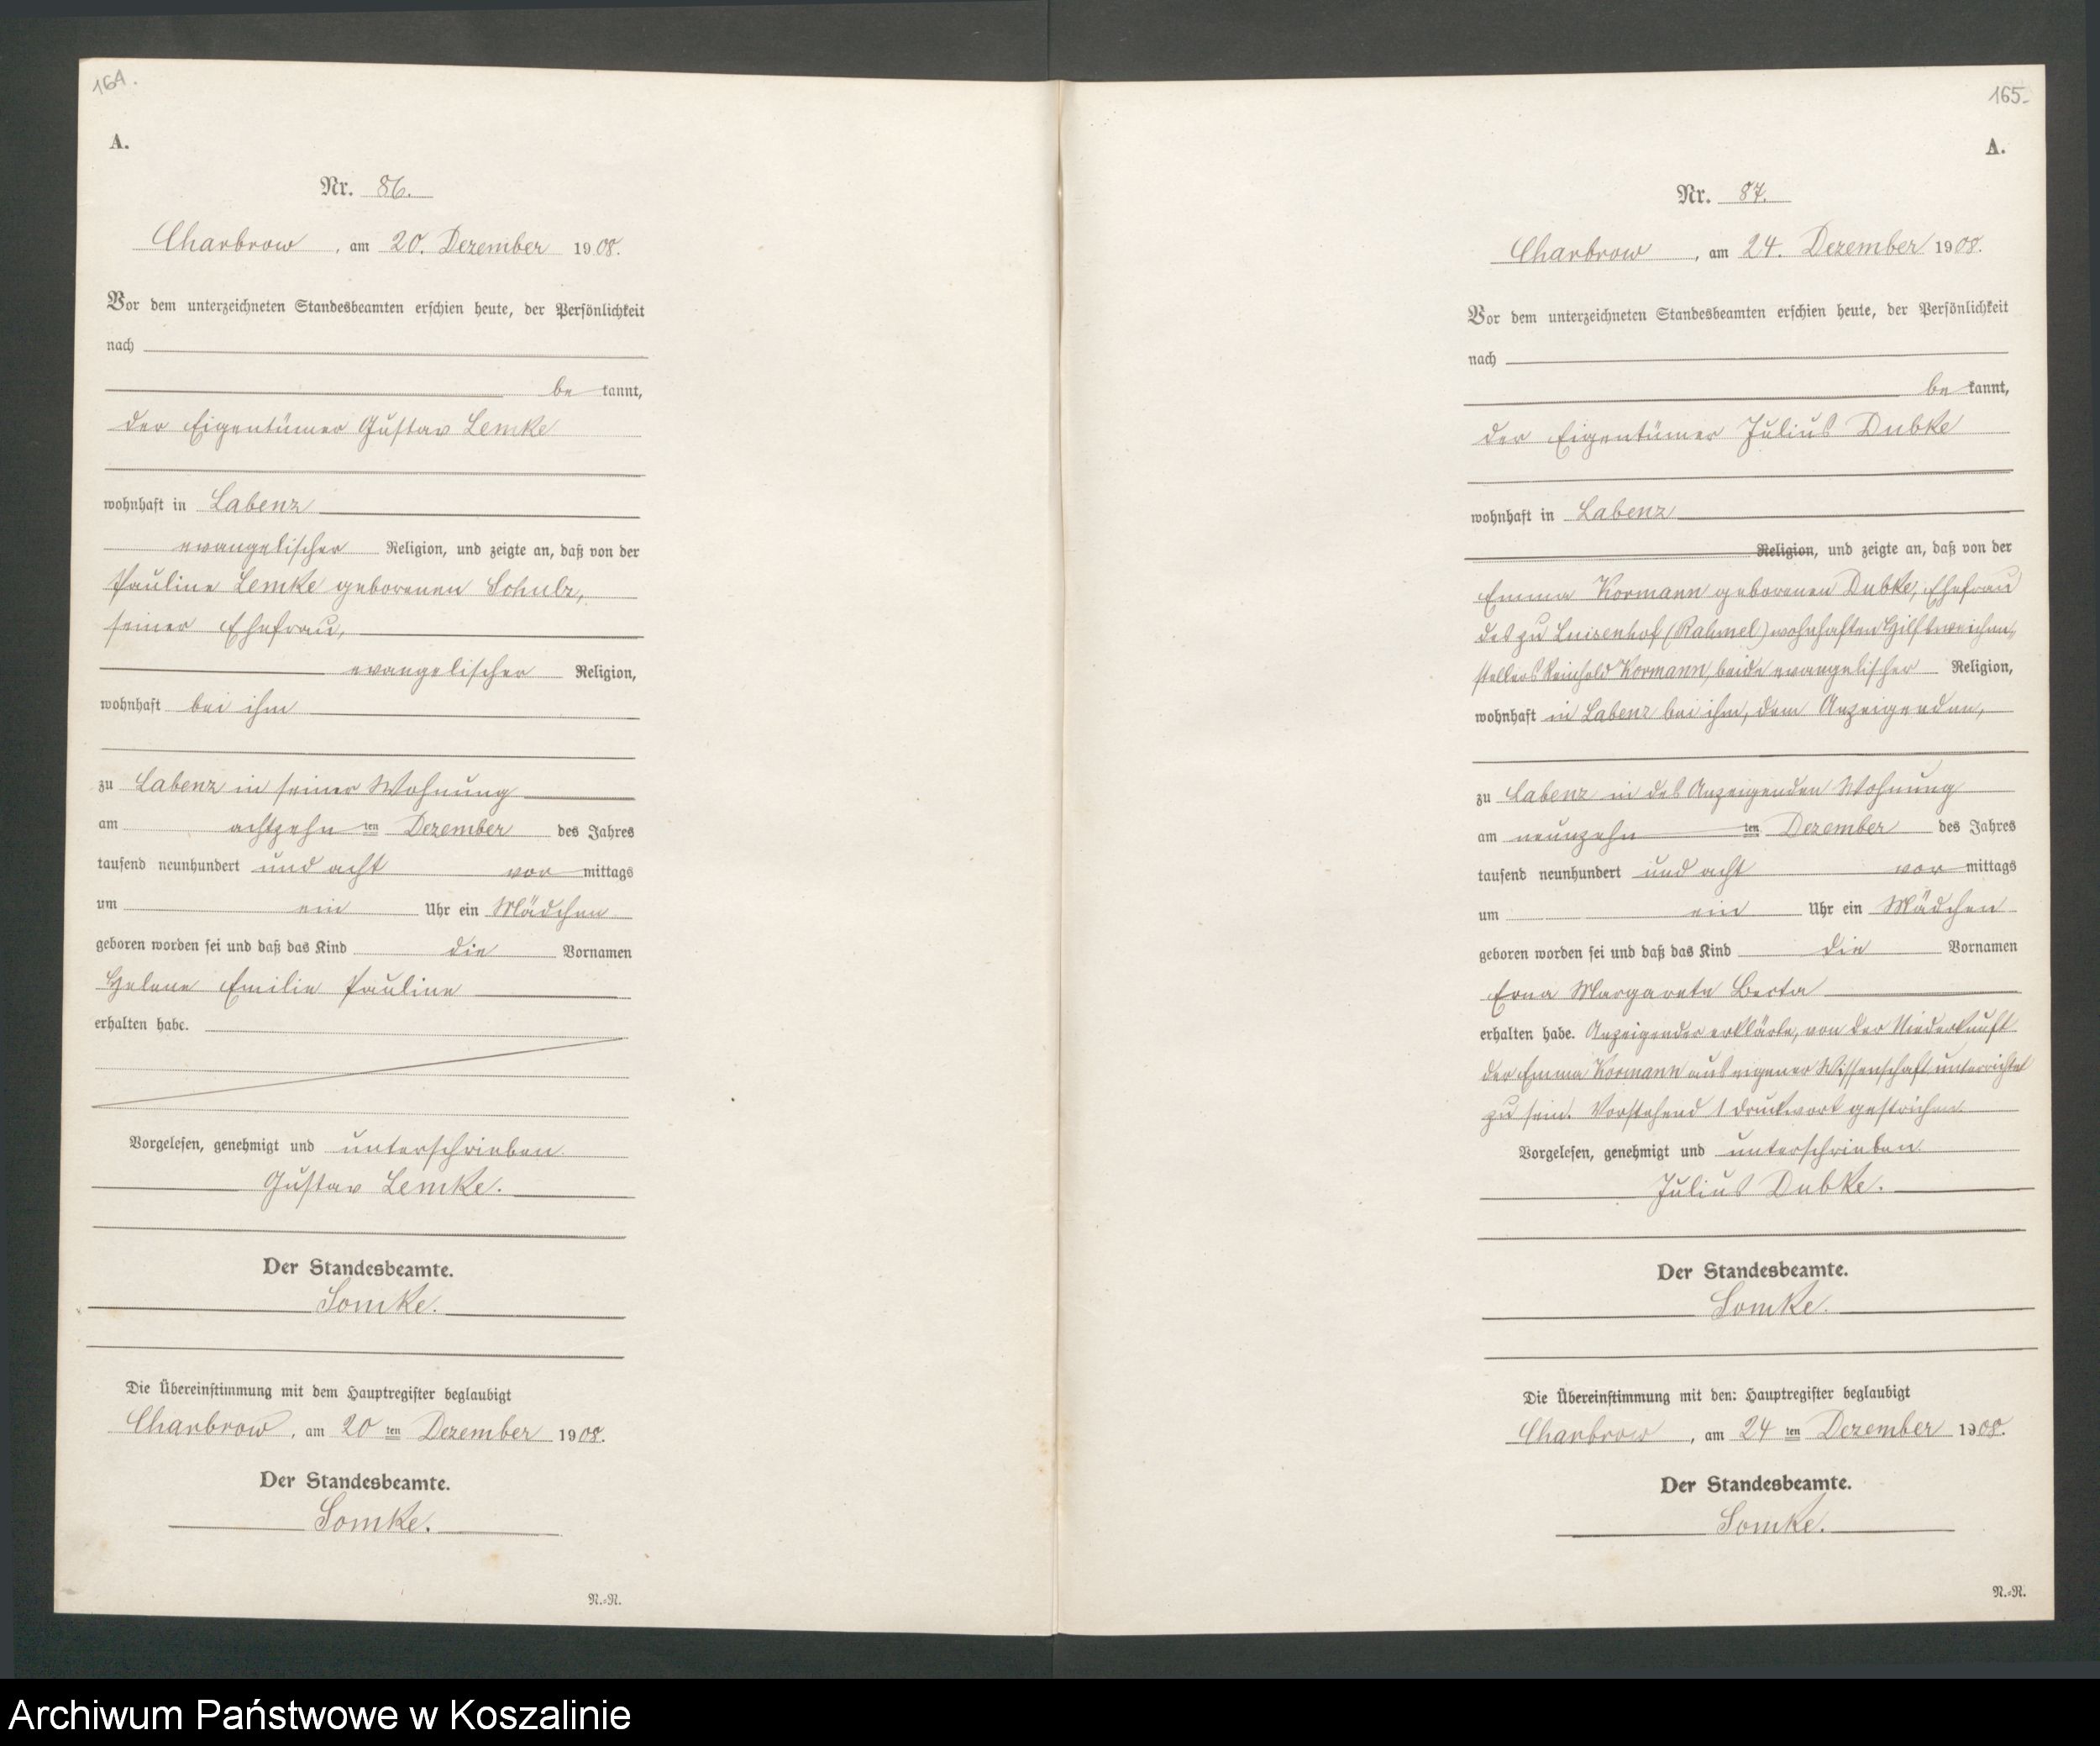 164.
A.
Nr. 86.
Charbrow, am 20. Dezember 1908.
Vor dem unterzeichneten Standesbeamten erschien heute, der Persönlichkeit
nach
be kannt,
der Eigentümer Gustav Lemke
wohnhaft in Labenz
evangelischer Religion, und zeigte an, daß von der
Pauline Lemke geborenen Schulz,
seiner Ehefrau,
evangelischer Religion,
wohnhaft bei ihm
zu Labenz in seiner Wohnung
am achtzehn ten Dezember des Jahres
tausend neunhundert und acht vor mittags
um ein Uhr ein Mädchen
geboren worden sei und daß das Kind die Vornamen
Helene Emilie Pauline
erhalten habe.
Vorgelesen, genehmigt und unterschrieben
Gustav Lemke.
Der Standesbeamte.
Somke.
Die Übereinstimmung mit dem Hauptregister beglaubigt
Charbrow, am 20 ten Dezember 1908.
Der Standesbeamte.
Somke.
N.-N.
165.
A.
Nr. 87.
Charbrow, am 24. Dezember 1908.
Vor dem unterzeichneten Standesbeamten erschien heute, der Persönlichkeit
nach
be kannt,
der Eigentümer Julius Dubke
wohnhaft in Labenz
Religion, und zeigte an, daß von der
Emma Kormann geborenen Dubke, Ehefrau
des zu Luisenhof (Rahmel) wohnhaften Hilfsweichen-
stellers Reinhold Kormann, beide evangelischer Religion,
wohnhaft in Labenz bei ihm, dem Anzeigenden,
zu Labenz in des Anzeigenden Wohnung
am neunzehn ten Dezember des Jahres
tausend neunhundert und acht vor mittags
um ein Uhr ein Mädchen
geboren worden sei und daß das Kind die Vornamen
Erna Margarete Berta
erhalten habe. Anzeigender erklärte, von der Niederkunft
der Emma Kormann aus eigener Wissenschaft unterrichtet
zu sein. Vorstehend 1 Druckwort gestrichen.
Vorgelesen, genehmigt und unterschrieben
Julius Dubke.
Der Standesbeamte.
Somke.
Die Übereinstimmung mit dem Hauptregister beglaubigt
Charbrow, am 24 ten Dezember 1908.
Der Standesbeamte.
Somke.
N.-N.
Archiwum Państwowe w Koszalinie